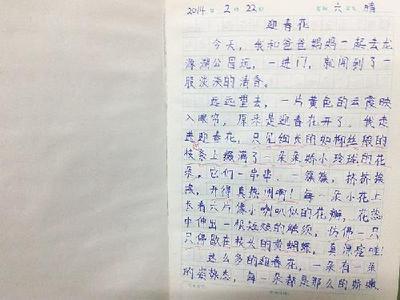 2014 2 22 六 晴
迎春花
今天，我和爸爸妈妈一起去龙
潭湖公园玩，一进门，就闻到了一
股淡淡的清香。
远远望去，一片黄色的云霞映
入眼帘，原来是迎春花开了。我走
进迎春花，只见细长的如柳丝般的
枝条上缀满了一朵朵娇小玲珑的花
朵。它们一串串、一簇簇，挤挤挨
挨，开得真热闹啊！每一朵小花上
长着六片像小喇叭似的花瓣，花蕊
中伸出一根短短的触须，仿佛一只
只停歇在枝头的黄蝴蝶，真漂亮啦！
这么多的迎春花，一朵有一朵
的姿态，每一朵都是那么的娇嫩